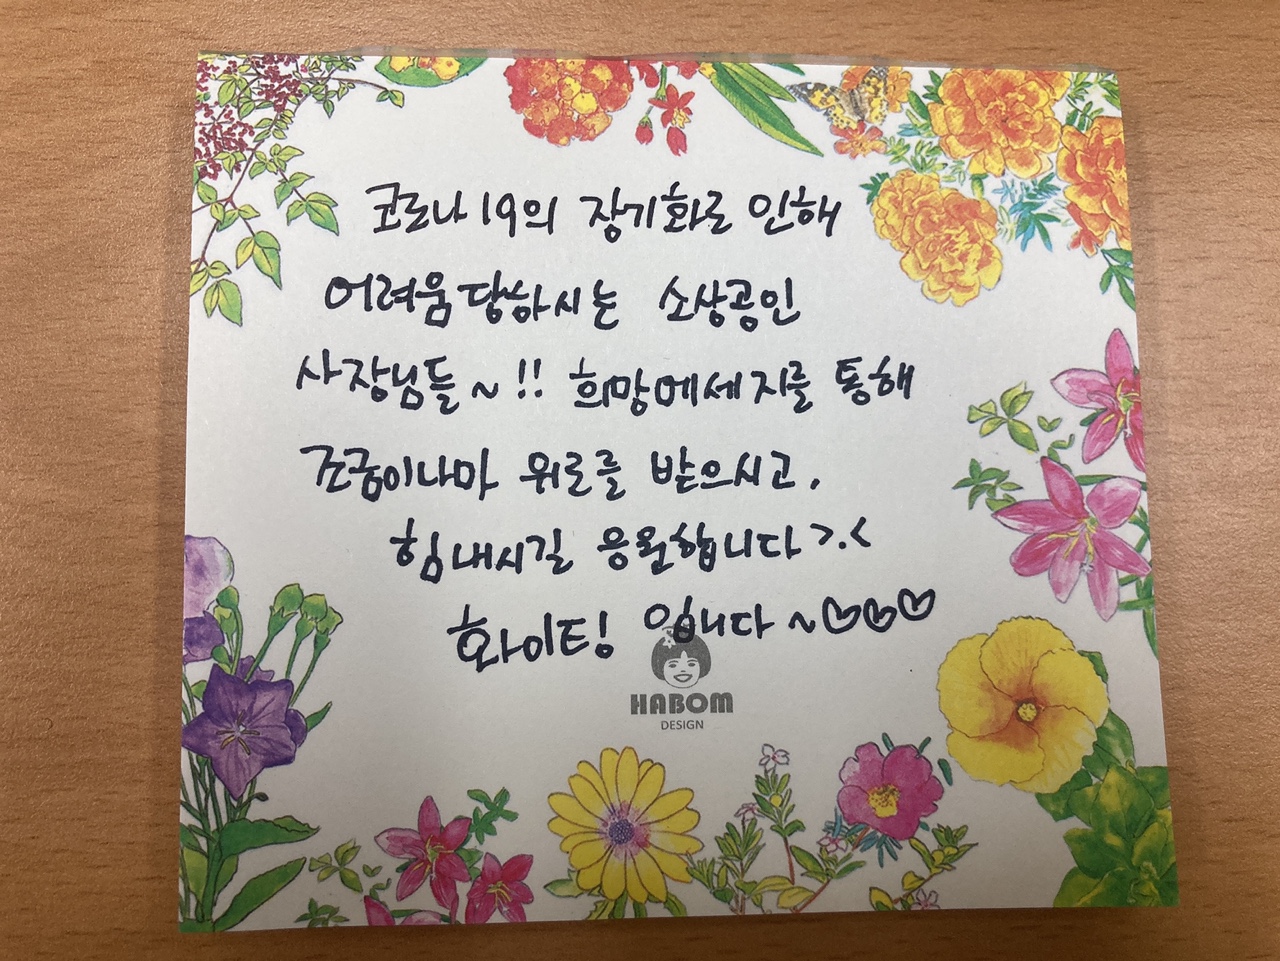 코로나19의 장기화로 인해
어려움 당하시는 소상공인
사장님들~!! 희망메세지를 통해
조금이나마 위로를 받으시고,
힘내시길 응원합니다>.<
화이팅 입니다~♡♡♡
HABOM
DESIGN